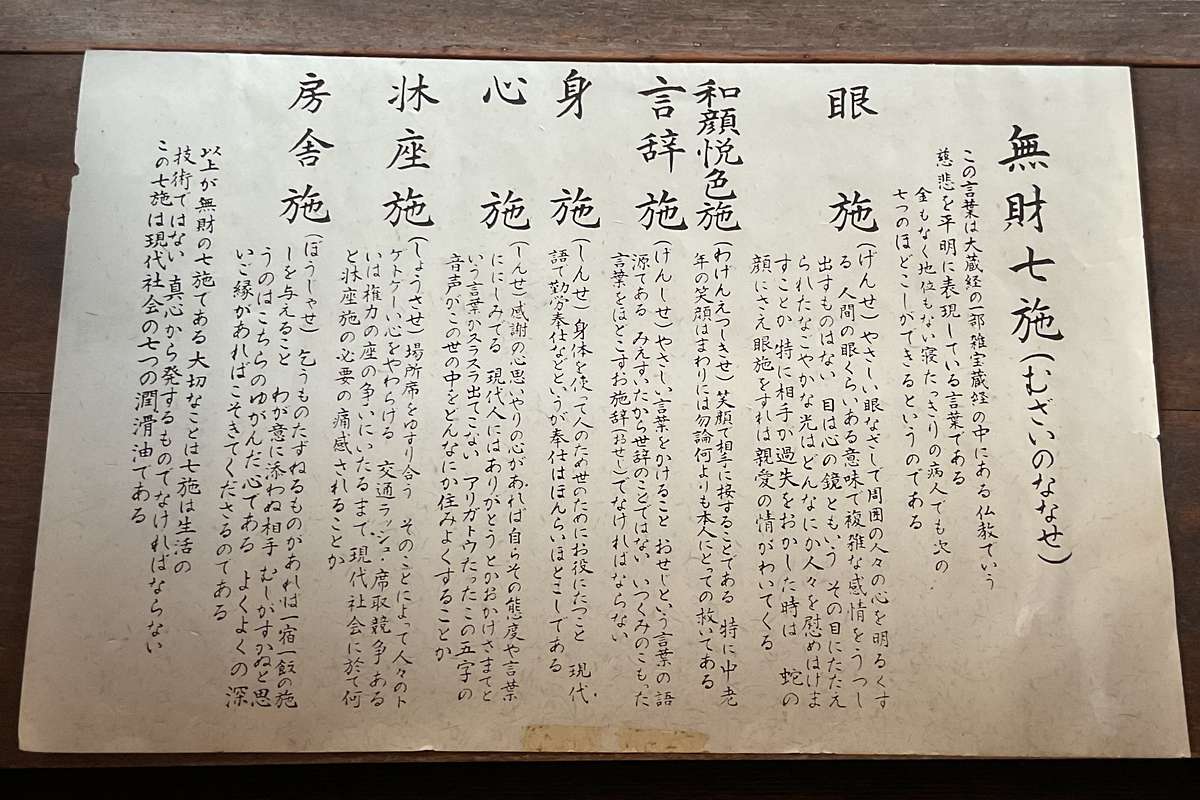 無財七施(むざいのななせ)
この言葉は大蔵経の一部雑宝蔵経の中にある仏教でいう
慈悲を平明に表現している言葉である
金もなく地位もない寝たっきりの病人でも次の
七つのほどこしができるというのである
眼施(げんせ)やさしい眼なざしで周囲の人々の心を明るくす
る 人間の眼くらいある意味で複雑な感情をうつし
出すものはない 目は心の鏡ともいう その目にたたえ
られたなごやかな光はどんなにか人々を慰めはげま
すことか 特に相手が過失をおかした時は 蛇の
顔にさえ眼施をすれば親愛の情がわいてくる
和顔悦色施(わげんえつしきせ)笑顔で相手に接することである 特に中老
年の笑顔はまわりには勿論何よりも本人にとっての救いである
言辞施(けんじせ)やさしい言葉をかけること おせじという言葉の語
源である みえすいたから世辞のことではない いつくみのこもった
言葉をほどこすお施辞(おせじ)でなければならない
身施(しんせ)身体を使って人のため世のためにお役にたつこと 現代
語で勤労奉仕などというが奉仕はほんらいほどこしである
心施(しんせ)感謝の心思いやりの心があれば自らその態度や言葉
ににじみでる 現代人にはありがとうとかおかげさまでと
いう言葉がスラスラ出てこない アリガトウたったこの五字の
音声がこの世の中をどんなにか住みよくすることか
牀座施(しょうざせ)場所席をゆずり合う そのことによって人々のト
ゲトゲしい心をやわらげる 交通ラッシュ・席取競争ある
いは権力の座の争いにいたるまで、現代社会に於て何
と牀座施の必要の痛感されることか
房舎施(ぼうじゃせ)乞うものたずねるものがあれば一宿一飯の施
しを与えること わが意に添わぬ相手 むしがすかぬと思
うのはこちらのゆがんだ心である よくよくの深
いご縁があればこそきてくださるのである
以上が無財の七施である 大切なことは七施は生活の
技術ではない 真心から発するものでなければならない
この七施は現代社会の七つの潤滑油である